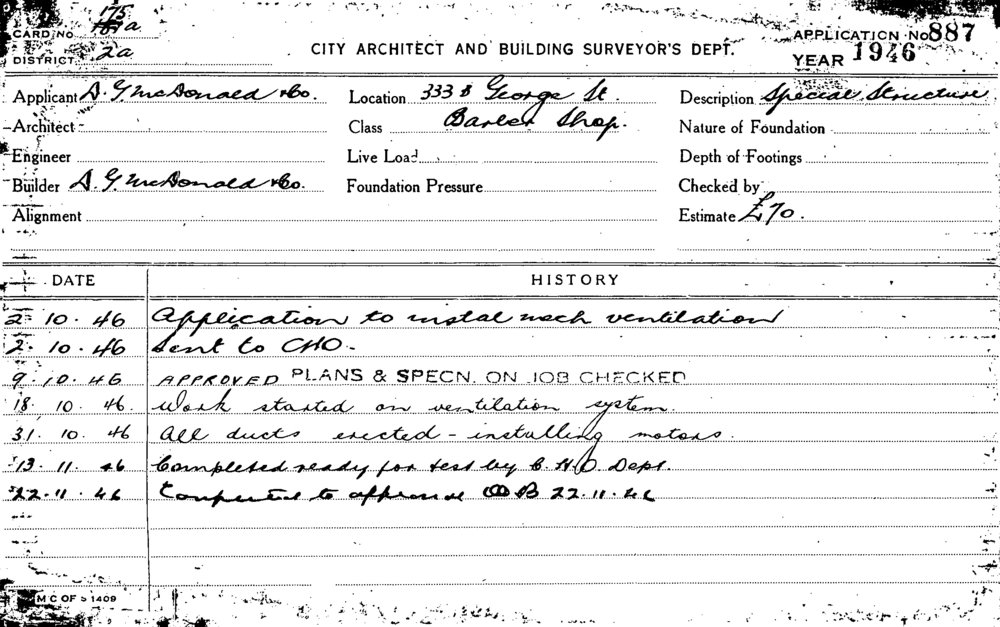 CARD No 175a
DISTRICT 2a
CITY ARCHITECT AND BUILDING SURVEYOR'S DEPT.
APPLICATION No 887
YEAR 1946
Applicant A. G. McDonald & Co. Location 333 B George St. Description Special Structure
Architect Class Barber Shop. Nature of Foundation
Engineer Live Load Depth of Footings
Builder A. G. McDonald & Co. Foundation Pressure Checked by
Alignment Estimate £70.
DATE HISTORY
2 10 46 Application to instal mech ventilation
2. 10. 46 Sent to CHO.
9. 10. 46 APPROVED PLANS & SPECN. ON JOB CHECKED
18 10 46. Work started on ventilation system.
31. 10. 46 All ducts erected - installing motors.
13. 11. 46 Completed ready for test by C.H.O. Dept.
22. 11. 46 to 22.11.46
M C OF S 1409